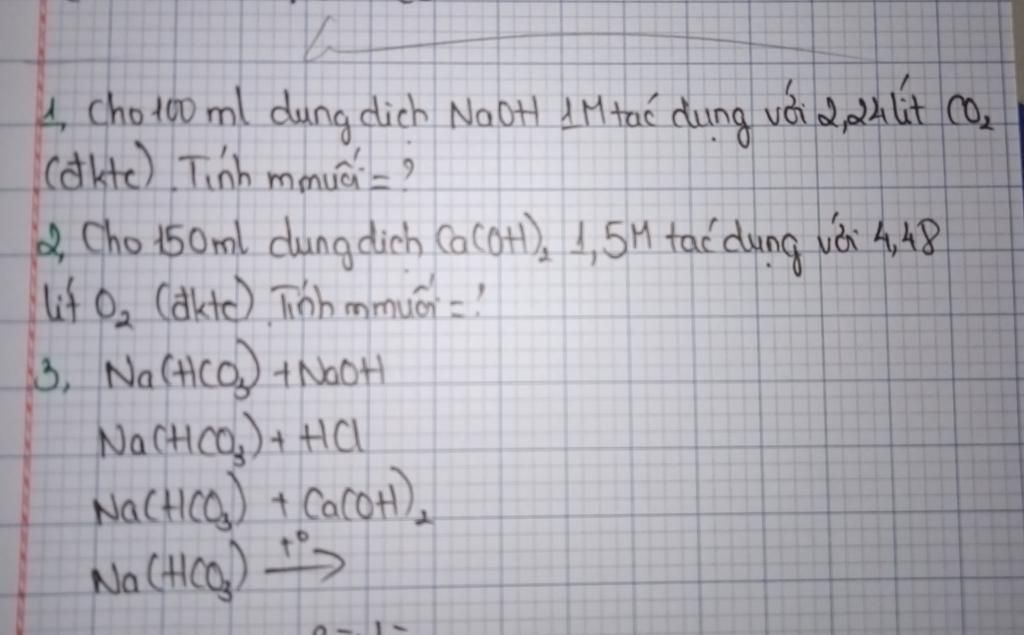 1, Cho 100 ml dung dịch NaOH 1M tác dụng với 2,24 lít CO₂
(đktc). Tính mmuối = ?
2, Cho 150ml dung dịch Ca(OH)₂ 1,5M tác dụng với 4,48
lít O₂ (đktc). Tính mmuối = ?
3, Na(HCO₃) + NaOH
Na(HCO₃) + HCl
Na(HCO₃) + Ca(OH)₂
Na(HCO₃) t° →